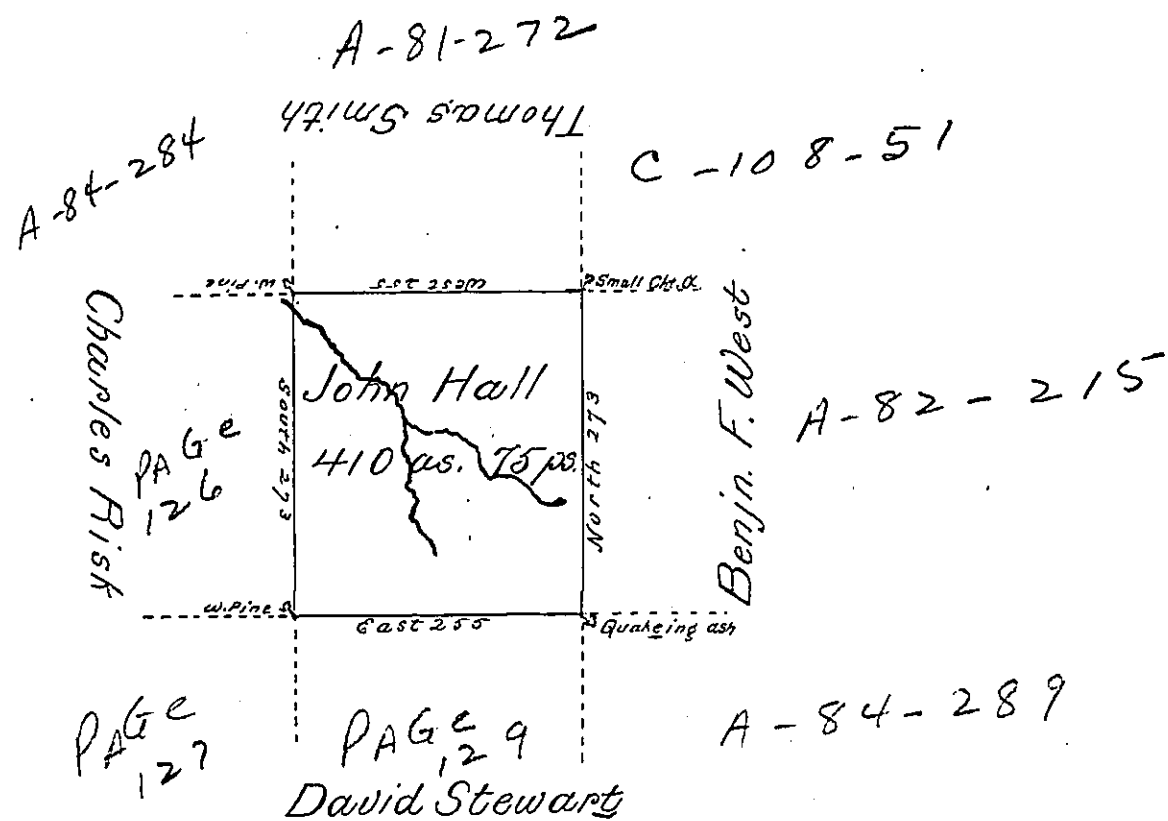 A-81-272
Thomas Smith
A-84-284
C-108-51
W. Pine
West 255
Small Cht. O.
Charles Risk
PAGe
126
South 273
John Hall
410 as. 75 ps.
North 273
Benjn. F. West
A-82-215
W. Pine
East 255
Quakeing ash
PAGe
127
PAGe
129
A-84-289
David Stewart